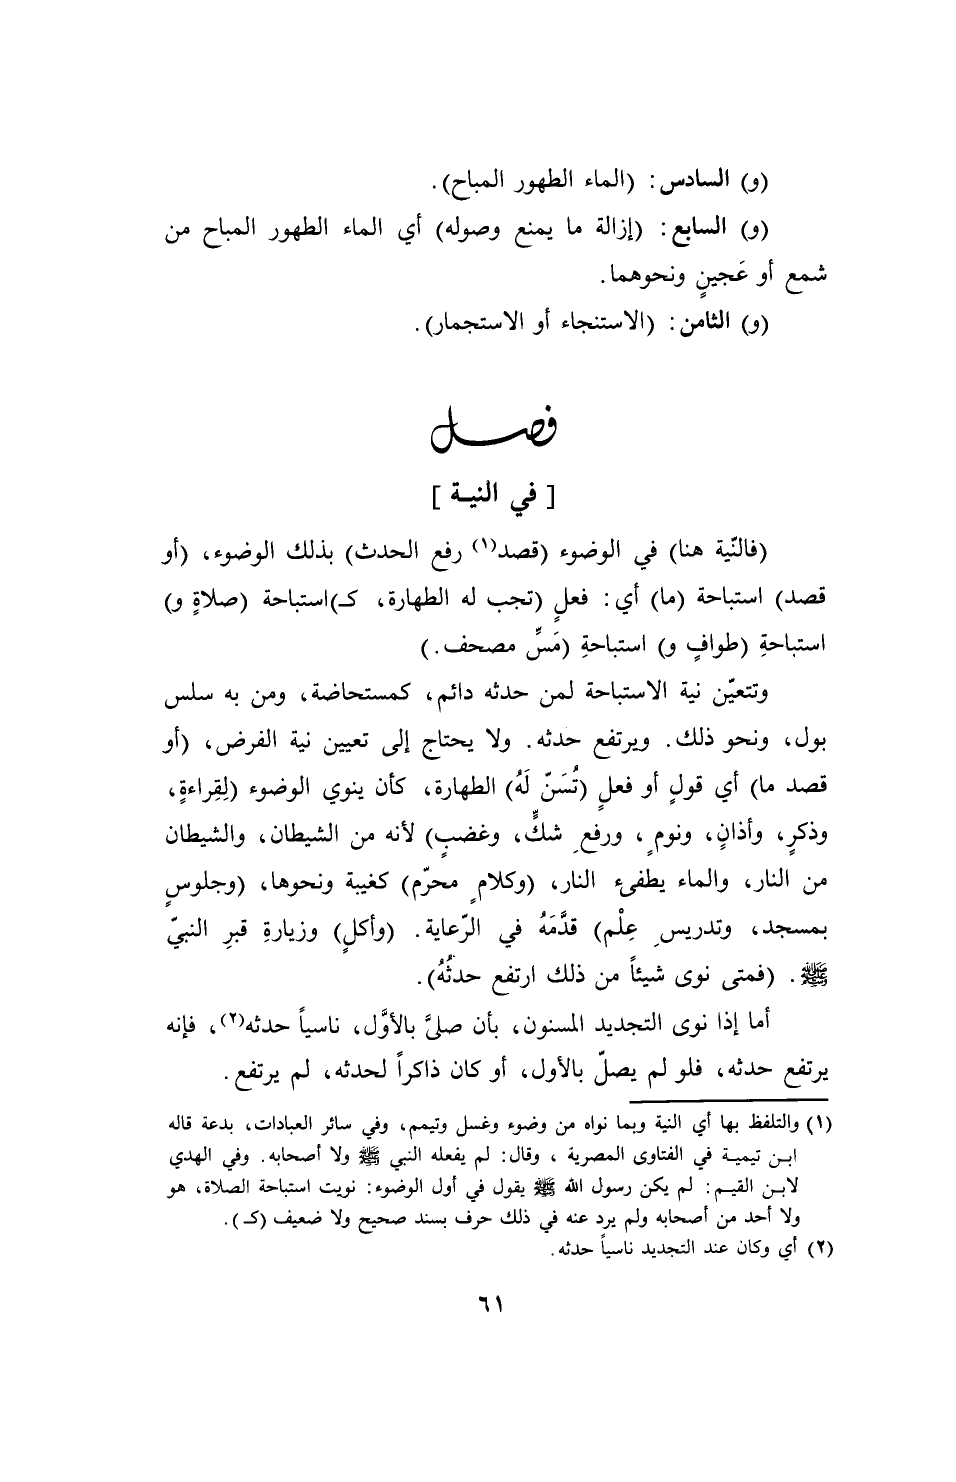 (و) السادس: (الماء الطهور المباح).
(و) السابع: (إزالة ما يمنع وصوله) أي الماء الطهور المباح من
شمع أو عَجينٍ ونحوهما.
(و) الثامن: (الاستنجاء أو الاستجمار).
فصل
[ في النية ]
(فالنّية هنا) في الوضوء (قصد(١) رفع الحدث) بذلك الوضوء، (أو
قصد) استباحة (ما) أي: فعلٍ (تجب له الطهارة، كـ)استباحة (صلاةٍ و)
استباحةِ (طوافٍ و) استباحةِ (مَسِّ مصحف.)
وتتعيّن نية الاستباحة لمن حدثه دائم، كمستحاضة، ومن به سلس
بول، ونحو ذلك. ويرتفع حدثه. ولا يحتاج إلى تعيين نية الفرض، (أو
قصد ما) أي قولٍ أو فعلٍ (تُسَنّ لَهُ) الطهارة، كأن ينوي الوضوء (لِقِراءةٍ،
وذكرٍ، وأذانٍ، ونومٍ، ورفعِ شكٍّ، وغضبٍ) لأنه من الشيطان، والشيطان
من النار، والماء يطفىء النار، (وكلامٍ محرّم) كغيبة ونحوها، (وجلوسٍ
بمسجد، وتدريسِ عِلْم) قدَّمَهُ في الرّعاية. (وأكلٍ) وزيارةِ قبرِ النبيّ
ﷺ. (فمتى نوى شيئاً من ذلك ارتفع حدثُهُ).
أما إذا نوى التجديد المسنون، بأن صلىَّ بالأوَّل، ناسياً حدثه(٢)، فإنه
يرتفع حدثه، فلو لم يصلّ بالأول، أو كان ذاكراً لحدثه، لم يرتفع.
(١) والتلفظ بها أي النية وبما نواه من وضوء وغسل وتيمم، وفي سائر العبادات، بدعة قاله
ابن تيمية في الفتاوى المصرية ، وقال: لم يفعله النبي ﷺ ولا أصحابه. وفي الهدي
لابن القيم: لم يكن رسول الله ﷺ يقول في أول الوضوء: نويت استباحة الصلاة، هو
ولا أحد من أصحابه ولم يرد عنه في ذلك حرف بسند صحيح ولا ضعيف (كـ).
(٢) أي وكان عند التجديد ناسياً حدثه.
٦١